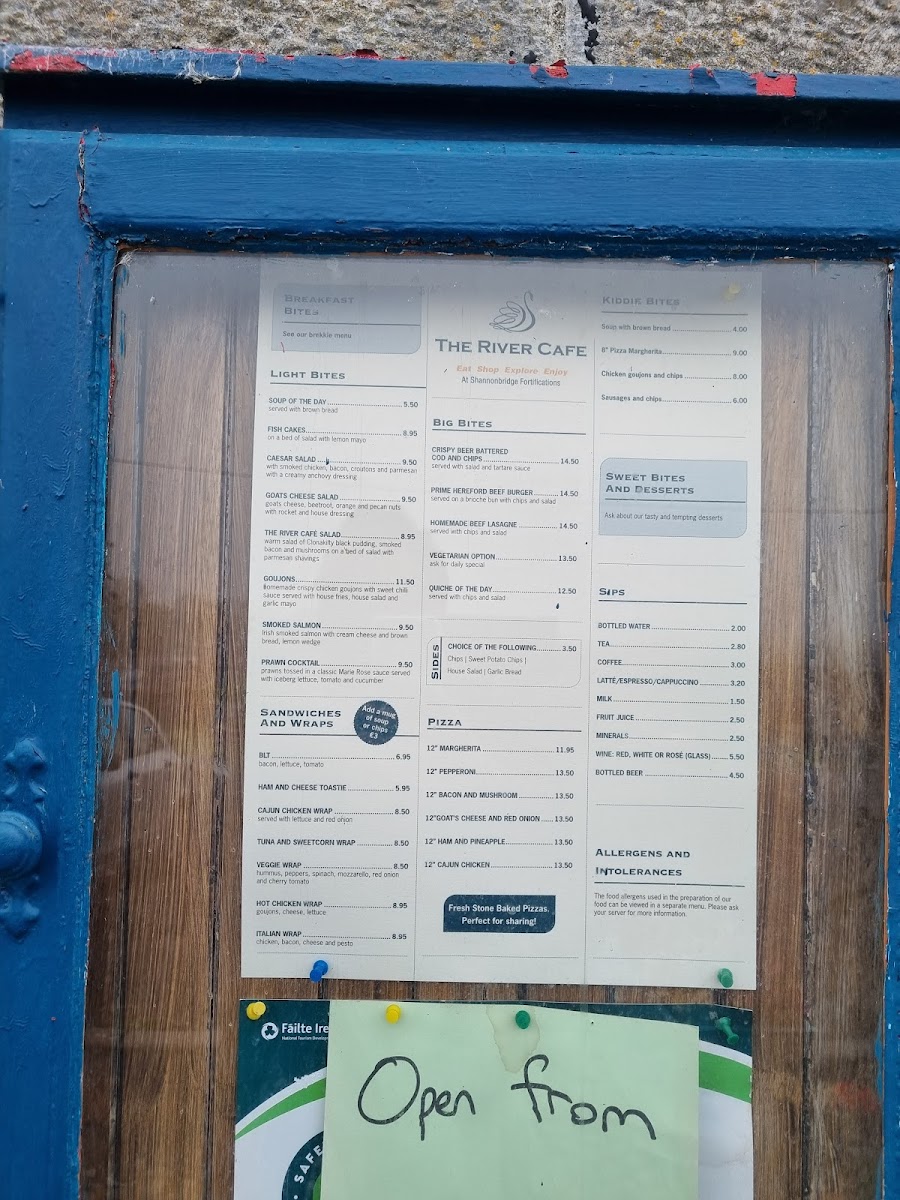 BREAKFAST
BITES
See our brekkie menu
LIGHT BITES
SOUP OF THE DAY 5.50
served with brown bread
FISH CAKES 8.95
on a bed of salad with lemon mayo
CAESAR SALAD 9.50
with smoked chicken, bacon, croutons and parmesan
with a creamy anchovy dressing
GOATS CHEESE SALAD 9.50
goats cheese, beetroot, orange and pecan nuts
with rocket and house dressing
THE RIVER CAFE SALAD 8.95
warm salad of Clonakilty black pudding, smoked
bacon and mushrooms on a bed of salad with
parmesan shavings
GOUJONS 11.50
homemade crispy chicken goujons with sweet chilli
sauce served with house fries, house salad and
garlic mayo
SMOKED SALMON 9.50
Irish smoked salmon with cream cheese and brown
bread, lemon wedge
PRAWN COCKTAIL 9.50
prawns tossed in a classic Marie Rose sauce served
with iceberg lettuce, tomato and cucumber
SANDWICHES
AND WRAPS
Add a mug
of soup
or chips
€3
BLT 6.95
bacon, lettuce, tomato
HAM AND CHEESE TOASTIE 5.95
CAJUN CHICKEN WRAP 8.50
served with lettuce and red onion
TUNA AND SWEETCORN WRAP 8.50
VEGGIE WRAP 8.50
hummus, peppers, spinach, mozzarello, red onion
and cherry tomato
HOT CHICKEN WRAP 8.95
goujons, cheese, lettuce
ITALIAN WRAP 8.95
chicken, bacon, cheese and pesto
THE RIVER CAFE
Eat Shop Explore Enjoy
At Shannonbridge Fortifications
BIG BITES
CRISPY BEER BATTERED
COD AND CHIPS 14.50
served with salad and tartare sauce
PRIME HEREFORD BEEF BURGER 14.50
served on a brioche bun with chips and salad
HOMEMADE BEEF LASAGNE 14.50
served with chips and salad
VEGETARIAN OPTION 13.50
ask for daily special
QUICHE OF THE DAY 12.50
served with chips and salad
SIDES
CHOICE OF THE FOLLOWING 3.50
Chips | Sweet Potato Chips |
House Salad | Garlic Bread
PIZZA
12" MARGHERITA 11.95
12" PEPPERONI 13.50
12" BACON AND MUSHROOM 13.50
12"GOAT'S CHEESE AND RED ONION 13.50
12" HAM AND PINEAPPLE 13.50
12" CAJUN CHICKEN 13.50
Fresh Stone Baked Pizzas.
Perfect for sharing!
KIDDIE BITES
Soup with brown bread 4.00
8" Pizza Margherita 9.00
Chicken goujons and chips 8.00
Sausages and chips 6.00
SWEET BITES
AND DESSERTS
Ask about our tasty and tempting desserts
SIPS
BOTTLED WATER 2.00
TEA 2.80
COFFEE 3.00
LATTÉ/ESPRESSO/CAPPUCCINO 3.20
MILK 1.50
FRUIT JUICE 2.50
MINERALS 2.50
WINE: RED, WHITE OR ROSÉ (GLASS) 5.50
BOTTLED BEER 4.50
ALLERGENS AND
INTOLERANCES
The food allergens used in the preparation of our
food can be viewed in a separate menu. Please ask
your server for more information.
Fáilte Ire
National Tourism Develop
SAFE
Open from